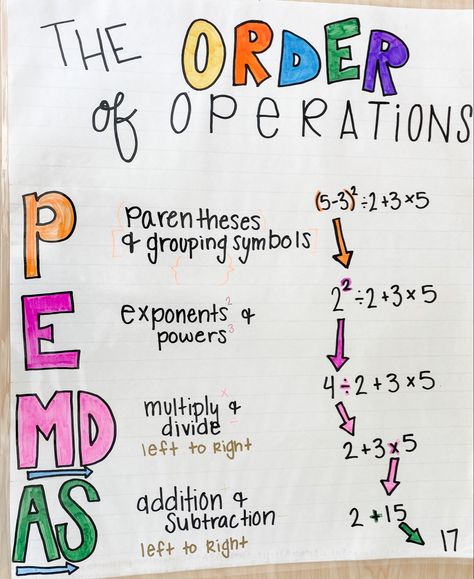 THE ORDER
of OPERATIONS
P
(parentheses)
[& grouping symbols]
{ }
(5-3)² ÷ 2 + 3 × 5
E
exponents² &
powers³
2² ÷ 2 + 3 × 5
MD
multiply × &
divide ÷
left to Right
4 ÷ 2 + 3 × 5
2 + 3 × 5
AS
addition + &
Subtraction
left to Right
2 + 15
17